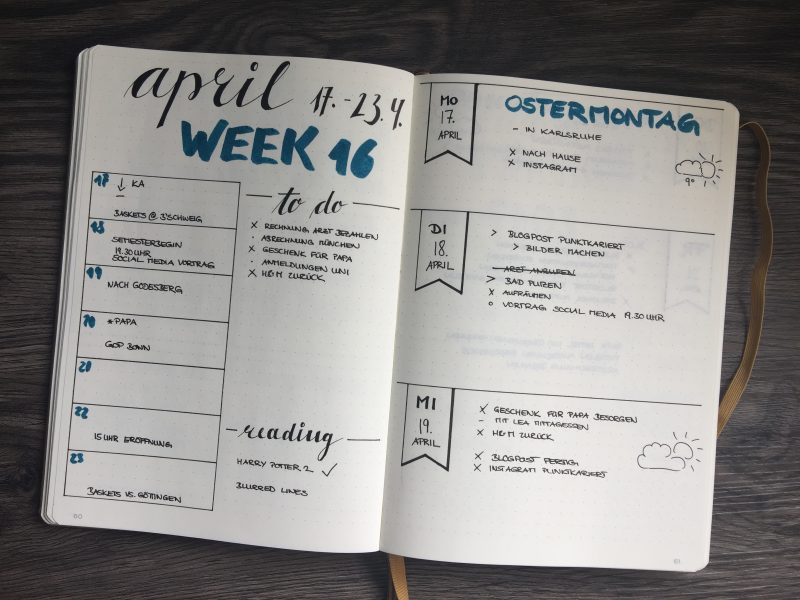 april 17.-23.4.
WEEK 16
17 ↓ KA
–
BASKETS @ B'SCHWEIG
18
SEMESTERBEGIN
19.30 UHR
SOCIAL MEDIA VORTRAG
19
NACH GODESBERG
20 *PAPA
GOP BONN
21
22
15 UHR ERÖFFNUNG
23
BASKETS VS. GÖTTINGEN
to do
x RECHNUNG ARZT BEZAHLEN
· ABRECHNUNG MÜNCHEN
x GESCHENK FÜR PAPA
· ANMELDUNGEN UNI
x H&M ZURÜCK
reading
HARRY POTTER 2 ✓
BLURRED LINES
60
MO
17.
APRIL
OSTERMONTAG
– IN KARLSRUHE
x NACH HAUSE
x INSTAGRAM
9°
DI
18.
APRIL
> BLOGPOST PUNKTKARIERT
> BILDER MACHEN
– ARZT ANRUFEN
> BAD PUTZEN
x AUFRÄUMEN
o VORTRAG SOCIAL MEDIA 19.30 UHR
MI
19.
APRIL
x GESCHENK FÜR PAPA BESORGEN
– MIT LEA MITTAGESSEN
x H&M ZURÜCK
x BLOGPOST FERTIG
x INSTAGRAM PUNKTKARIERT
61